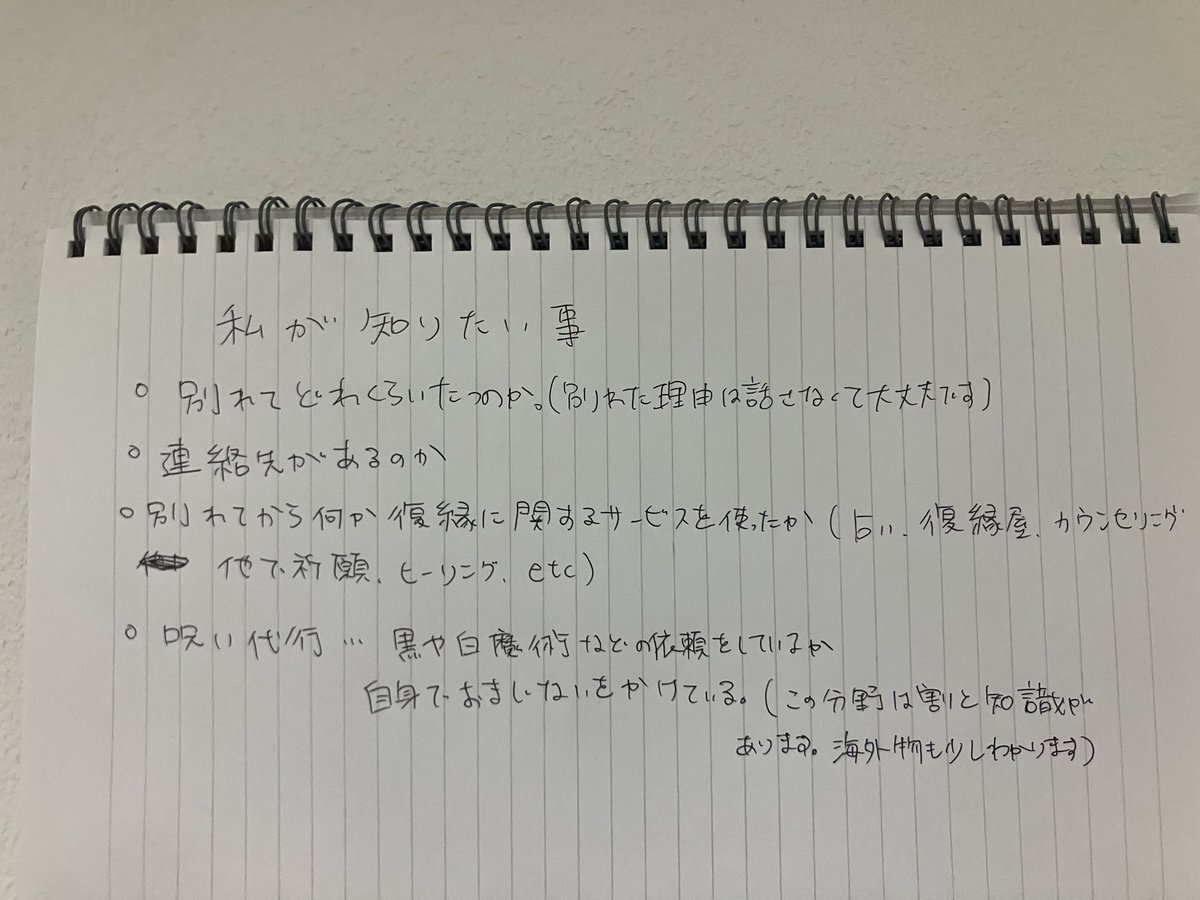 私が知りたい事
○ 別れてどれくらいたつのか。(別れた理由は話さなくて大丈夫です)
○ 連絡先があるのか
○ 別れてから何か復縁に関するサービスを使ったか(占い、復縁屋、カウンセリング
他で祈願、ヒーリング、etc)
○ 呪い代行… 黒や白魔術などの依頼をしているか
自身でおまじないをかけている。(この分野は割と知識が
あります。海外物も少しわかります)